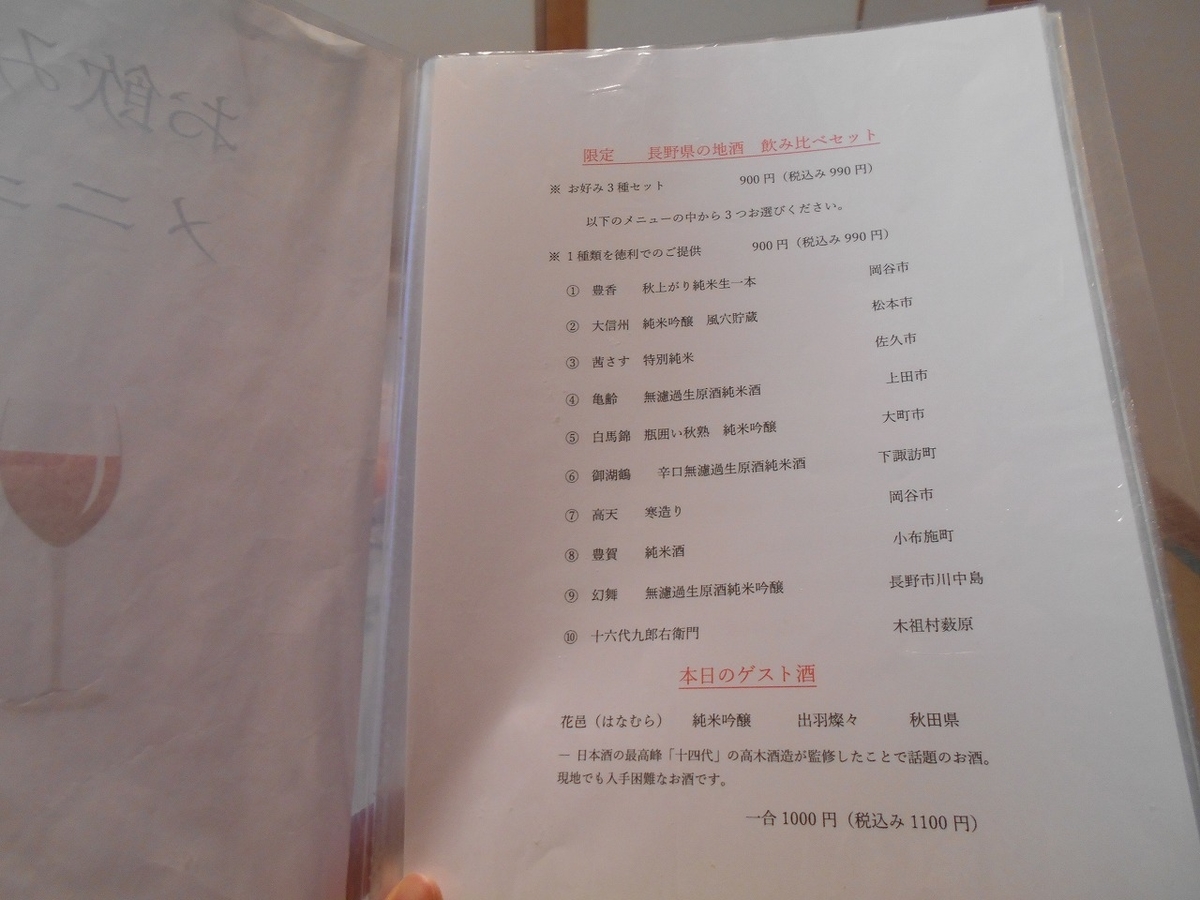 お飲み
メニュ
限定　長野県の地酒　飲み比べセット
※ お好み3種セット　900円（税込み990円）
以下のメニューの中から3つお選びください。
※ 1種類を徳利でのご提供　900円（税込み990円）
① 豊香　秋上がり純米生一本　岡谷市
② 大信州　純米吟醸　風穴貯蔵　松本市
③ 茜さす　特別純米　佐久市
④ 亀齢　無濾過生原酒純米酒　上田市
⑤ 白馬錦　瓶囲い秋熟　純米吟醸　大町市
⑥ 御湖鶴　辛口無濾過生原酒純米酒　下諏訪町
⑦ 高天　寒造り　岡谷市
⑧ 豊賀　純米酒　小布施町
⑨ 幻舞　無濾過生原酒純米吟醸　長野市川中島
⑩ 十六代九郎右衛門　木祖村薮原
本日のゲスト酒
花邑（はなむら）　純米吟醸　出羽燦々　秋田県
― 日本酒の最高峰「十四代」の高木酒造が監修したことで話題のお酒。
現地でも入手困難なお酒です。
一合1000円（税込み1100円）